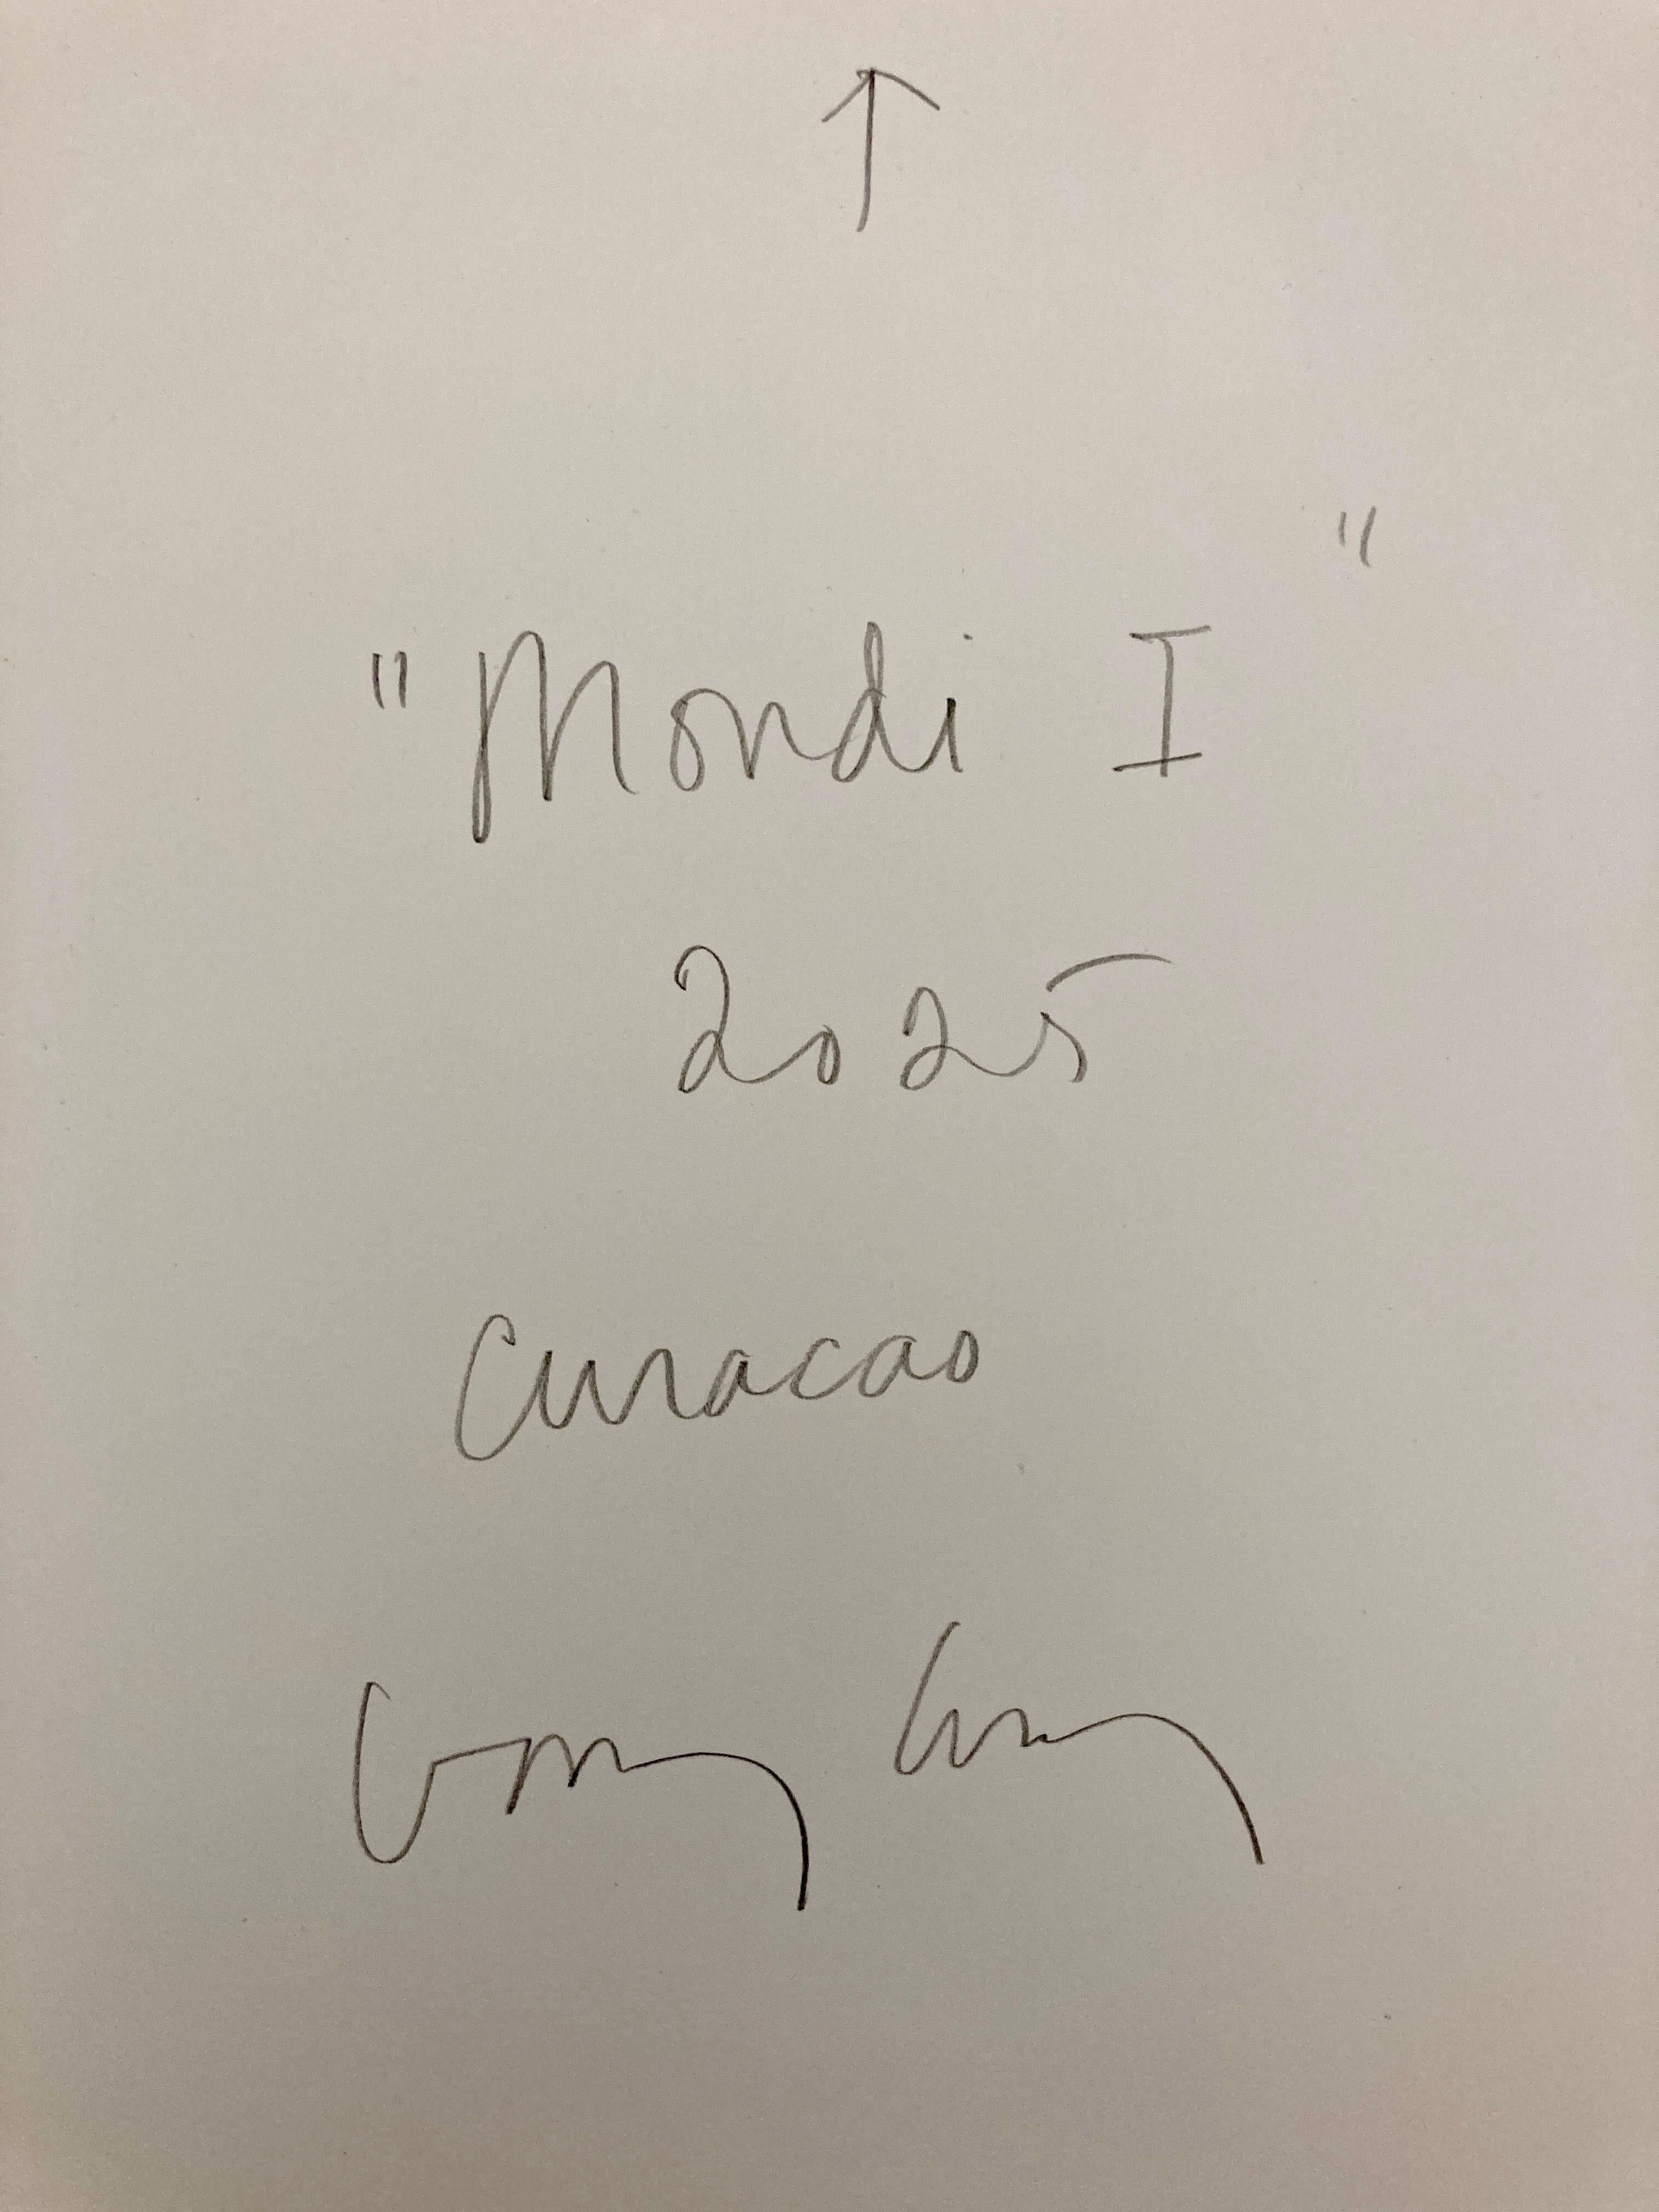 ↑
"Mondi I"
2025
Curacao